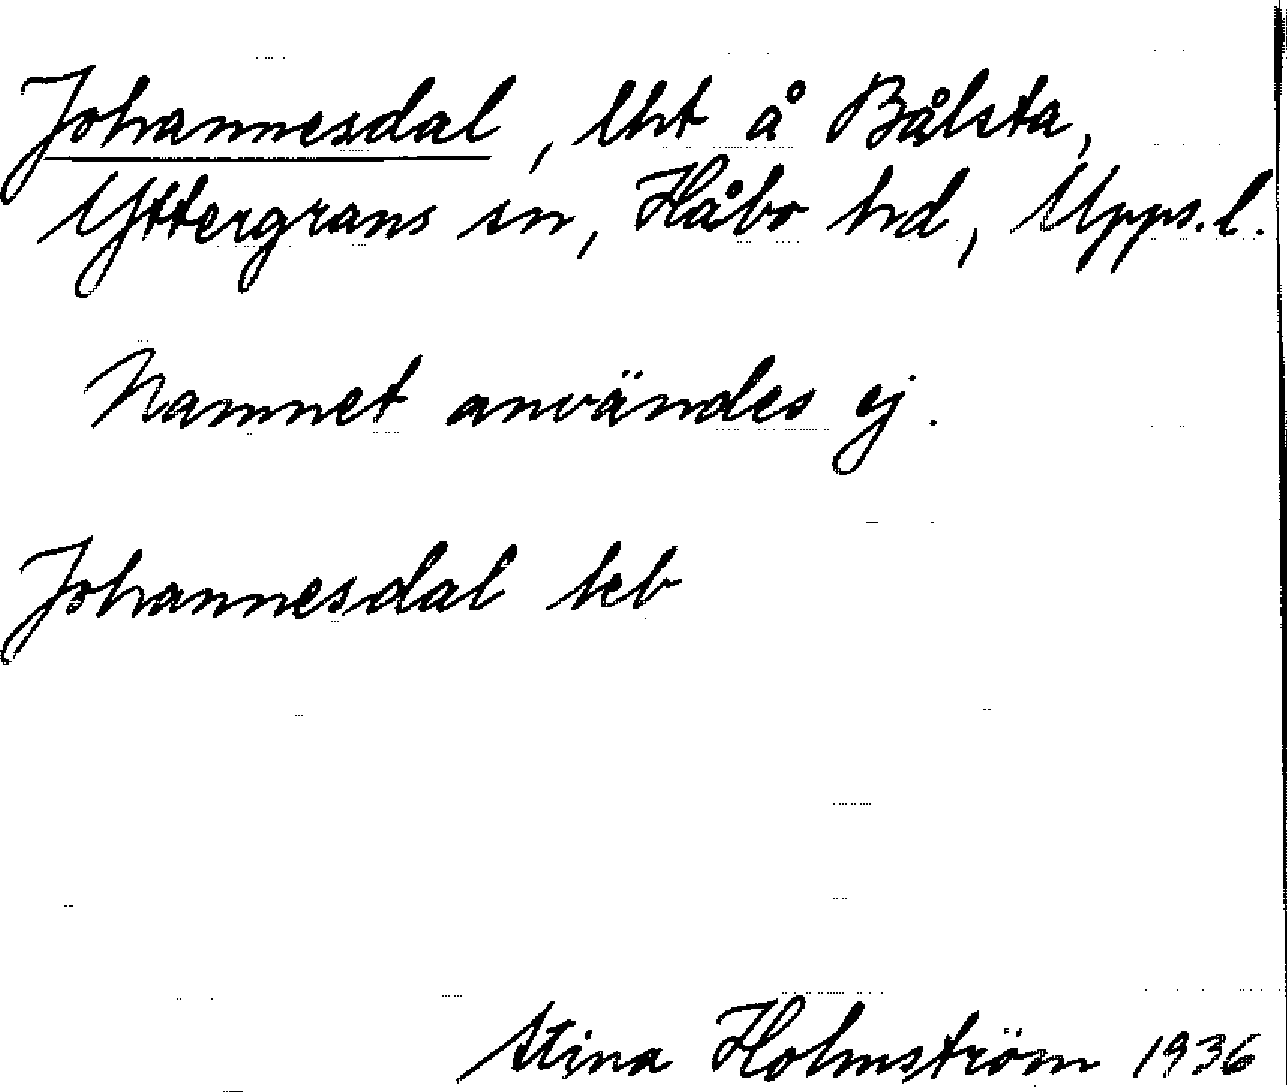 Johannesdal, lht å Bålsta,
Yttergrans sn, Håbo hd, Upps. l.
Namnet användes ej.
Johannesdal keb
Stina Holmström 1936